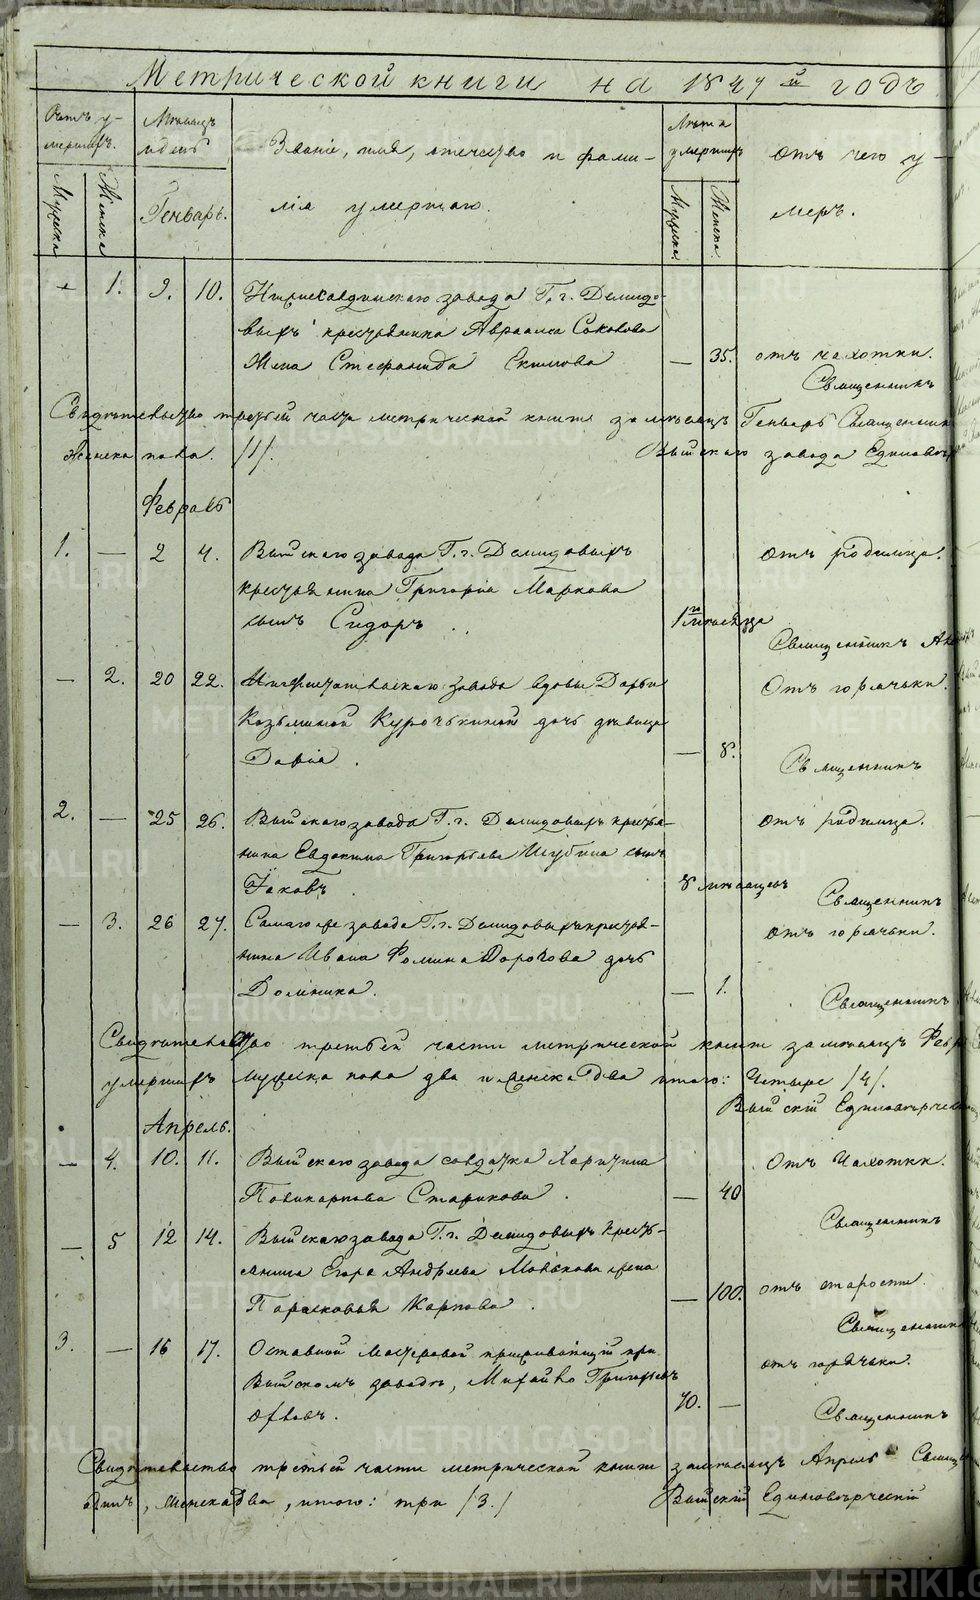 Метрической книги на 1847й годъ
Счетъ у-
мершихъ.
Мужеска
Женска
Месяцъ
и день
Генварь.
Званiе, имя, отечество и фами-
лiя умершаго.
Лета
умершихъ
Мужеска
Женска.
отъ чего у-
меръ.
- 1. 9. 10. завода Г.г. Демидо-
выхъ крестьянина Авраама Соколова
Жена Стефанида Екимова — 35. отъ чахотки.
Священникъ
Свидетельство третьей части метрической книги за месяцъ Генварь Священник
женска пола. /1/. Выйскаго завода Единовер
Февраль
1. — 2 4. Выйскаго завода Г.г. Демидовыхъ отъ родимца.
крестьянина Григорiя Маркова
сынъ Сидоръ. 1го месяца
Священникъ
— 2. 20 22. завода вдовы Дарьи Отъ горячьки.
Козьминой Курочькиной дочь девица
Дарiа. — 8.
Священникъ
2. — 25 26. Выйскаго завода Г.г. Демидовыхъ крестья- отъ родимца.
нина Евдокима Григорьева Шубина сынъ
Iаковъ. 8 месяцевъ
Священникъ
— 3. 26 27. Самаго же завода Г.г. Демидовыхъ крестья- отъ горячьки.
нина Ивана Фомина Дорохова дочь
Домника. — 1.
Священникъ
Свидетельство третьей части метрической книги за месяцъ Февр
умершихъ мужеска пола два и женска два итого: Четыре /4/.
Выйскiй Единоверческ
Апрель.
— 4. 10. 11. Выйскаго завода солдатка Харитина Отъ Чахотки.
Поликарпова Старикова. — 40
Священникъ
— 5 12 14. Выйскаго завода Г.г. Демидовыхъ кресть-
янина Егора Андреева Молькова жена
Парасковья Карпова. — 100. отъ старости.
Священникъ
3. — 16 17. Оставной мастеровой проживающiй при отъ горячьки.
Выйскомъ заводе, Михайло Григорьевъ
70. —
Священникъ
Свидетельство третьей части метрической книги за месяцъ Апрель Священ
одинъ, женска два, итого: три /3./ Выйскiй Единоверческiй
METRIKI.GASO-URAL.RU